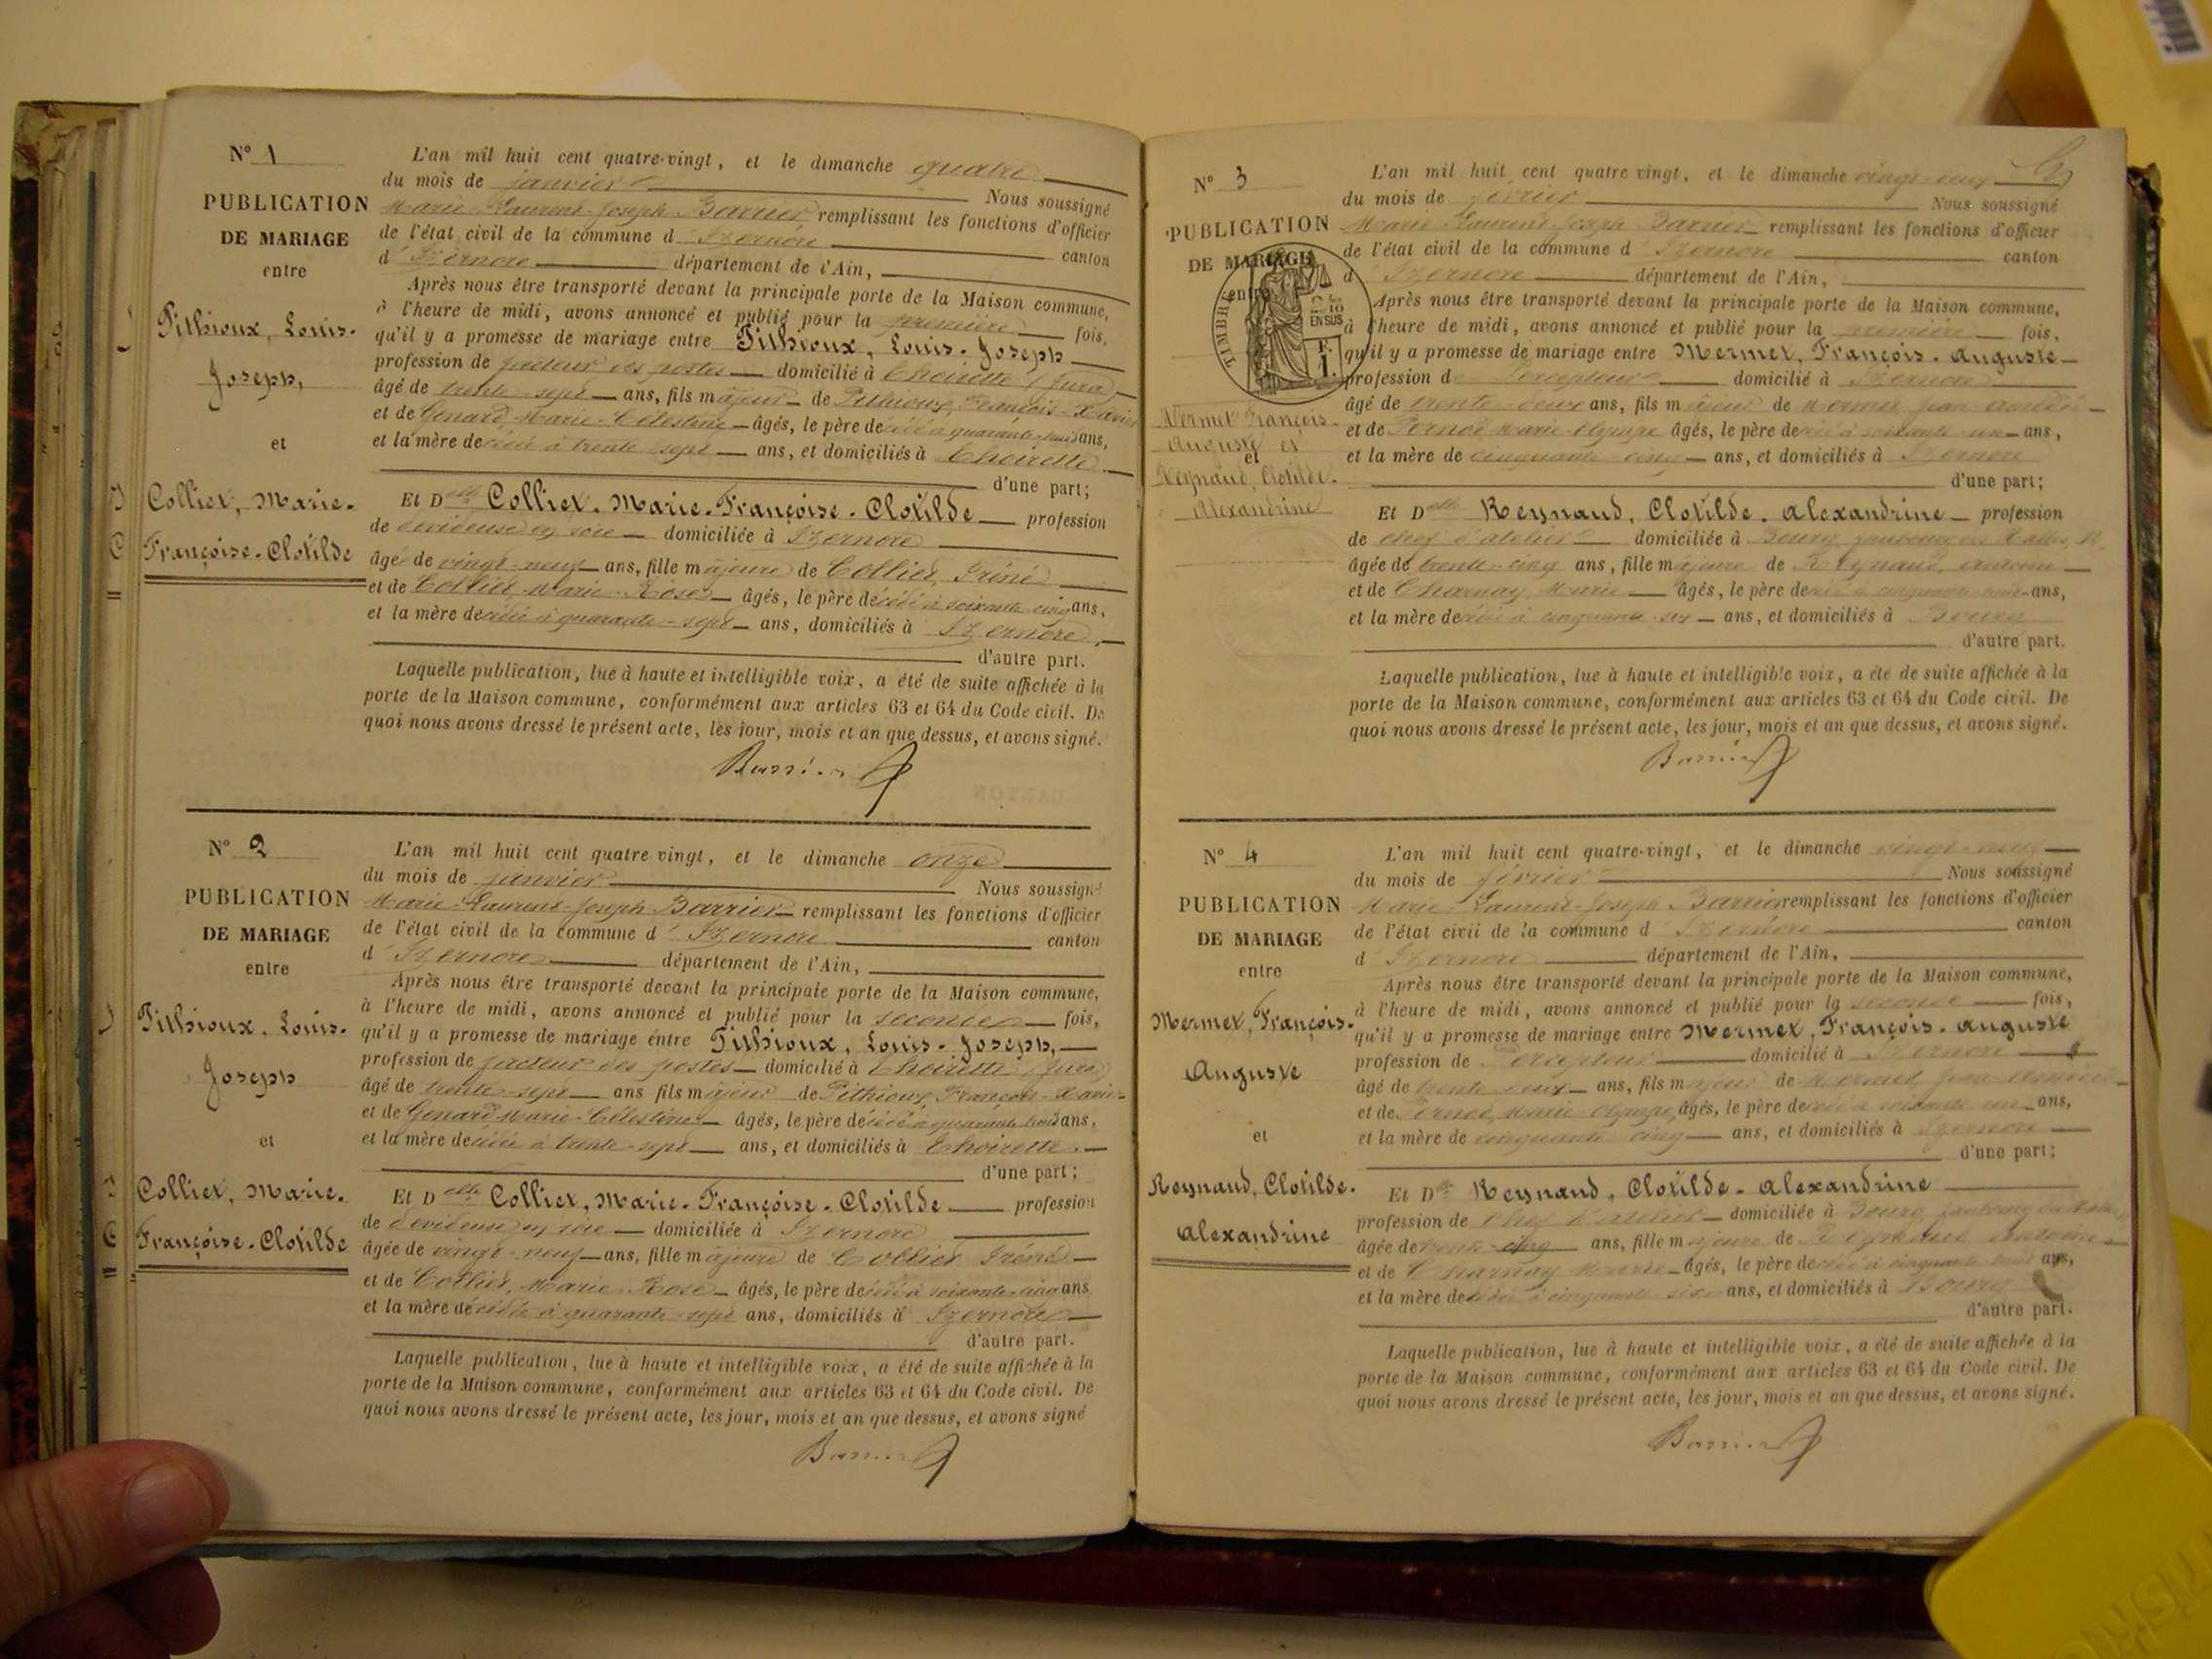 N° 1
PUBLICATION
DE MARIAGE
entre
Pithioux, Louis-
Joseph,
et
Colliet, Marie-
Françoise-Clotilde
L'an mil huit cent quatre-vingt, et le dimanche quatre
du mois de janvier Nous soussigné
Marie-Laurent-Joseph Barrier remplissant les fonctions d'officier
de l'état civil de la commune d'Izernore canton
d'Izernore département de l'Ain,
Après nous être transporté devant la principale porte de la Maison commune,
à l'heure de midi, avons annoncé et publié pour la première fois,
qu'il y a promesse de mariage entre Pithioux, Louis-Joseph
profession de facteur des postes domicilié à Thoirette (Jura)
âgé de trente-sept ans, fils majeur de Pithioux, François-Xavier
et de Genard, Marie-Célestine âgés, le père décédé à quarante-huit ans,
et la mère décédée à trente-sept ans, et domiciliés à Thoirette
d'une part;
Et Dlle Colliet, Marie-Françoise-Clotilde profession
de dévideuse en soie domiciliée à Izernore
âgée de vingt-neuf ans, fille majeure de Colliet, Iréné
et de Colliet, Marie-Rose âgés, le père décédé à soixante-cinq ans,
et la mère décédée à quarante-sept ans, domiciliés à Izernore
d'autre part.
Laquelle publication, lue à haute et intelligible voix, a été de suite affichée à la
porte de la Maison commune, conformément aux articles 63 et 64 du Code civil. De
quoi nous avons dressé le présent acte, les jour, mois et an que dessus, et avons signé.
Barrier
N° 2
PUBLICATION
DE MARIAGE
entre
Pithioux, Louis-
Joseph
et
Colliet, Marie-
Françoise-Clotilde
L'an mil huit cent quatre vingt, et le dimanche onze
du mois de janvier Nous soussigné
Marie-Laurent-Joseph Barrier remplissant les fonctions d'officier
de l'état civil de la commune d'Izernore canton
d'Izernore département de l'Ain,
Après nous être transporté devant la principale porte de la Maison commune,
à l'heure de midi, avons annoncé et publié pour la seconde fois,
qu'il y a promesse de mariage entre Pithioux, Louis-Joseph,
profession de facteur des postes domicilié à Thoirette (Jura)
âgé de trente-sept ans fils majeur de Pithioux François-Xavier
et de Genard Marie-Célestine âgés, le père décédé à quarante huit ans,
et la mère décédée à trente-sept ans, et domiciliés à Thoirette
d'une part;
Et Dlle Colliet, Marie-Françoise-Clotilde profession
de dévideuse en soie domiciliée à Izernore
âgée de vingt-neuf ans, fille majeure de Colliet Iréné
et de Colliet, Marie-Rose âgés, le père décédé à soixante-cinq ans
et la mère décédée à quarante-sept ans, domiciliés à Izernore
d'autre part.
Laquelle publication, lue à haute et intelligible voix, a été de suite affichée à la
porte de la Maison commune, conformément aux articles 63 et 64 du Code civil. De
quoi nous avons dressé le présent acte, les jour, mois et an que dessus, et avons signé
Barrier
N° 3
PUBLICATION
DE MARIAGE
entre
TIMBRE
EN SUS
Mermet François-
Auguste et
et
Reynaud, Clotilde-
Alexandrine
L'an mil huit cent quatre vingt, et le dimanche vingt-deux
du mois de février Nous soussigné
Marie-Laurent-Joseph Barrier remplissant les fonctions d'officier
de l'état civil de la commune d'Izernore canton
d'Izernore département de l'Ain,
Après nous être transporté devant la principale porte de la Maison commune,
à l'heure de midi, avons annoncé et publié pour la première fois,
qu'il y a promesse de mariage entre Mermet, François-Auguste
profession de Percepteur domicilié à Izernore
âgé de trente-deux ans, fils majeur de Mermet Jean
et de Marie-Olympe âgés, le père décédé à soixante-un ans,
et la mère de cinquante-cinq ans, et domiciliés à Izernore
d'une part;
Et Dlle Reynaud, Clotilde-Alexandrine profession
de chef d'atelier domiciliée à Bourg, faubourg
âgée de trente-cinq ans, fille majeure de Reynaud, Antoine
et de Charnay, Marie âgés, le père décédé à cinquante-huit ans,
et la mère décédée à cinquante-six ans, et domiciliés à Bourg
d'autre part.
Laquelle publication, lue à haute et intelligible voix, a été de suite affichée à la
porte de la Maison commune, conformément aux articles 63 et 64 du Code civil. De
quoi nous avons dressé le présent acte, les jour, mois et an que dessus, et avons signé.
Barrier
N° 4
PUBLICATION
DE MARIAGE
entre
Mermet, François-
Auguste
et
Reynaud, Clotilde-
Alexandrine
L'an mil huit cent quatre-vingt, et le dimanche vingt-neuf
du mois de février Nous soussigné
Marie-Laurent-Joseph Barrier remplissant les fonctions d'officier
de l'état civil de la commune d'Izernore canton
d'Izernore département de l'Ain,
Après nous être transporté devant la principale porte de la Maison commune,
à l'heure de midi, avons annoncé et publié pour la seconde fois,
qu'il y a promesse de mariage entre Mermet, François-Auguste
profession de Percepteur domicilié à Izernore
âgé de trente-deux ans, fils majeur de Mermet, Jean
et de Marie-Olympe, âgés, le père décédé à soixante-un ans,
et la mère de cinquante-cinq ans, et domiciliés à Izernore
d'une part;
Et Dlle Reynaud, Clotilde-Alexandrine
profession de Chef d'atelier domiciliée à Bourg, faubourg
âgée de trente-cinq ans, fille majeure de Reynaud Antoine
et de Charnay Marie âgés, le père décédé à cinquante-huit ans,
et la mère décédée à cinquante-six ans, et domiciliés à Bourg
d'autre part.
Laquelle publication, lue à haute et intelligible voix, a été de suite affichée à la
porte de la Maison commune, conformément aux articles 63 et 64 du Code civil. De
quoi nous avons dressé le présent acte, les jour, mois et an que dessus, et avons signé.
Barrier